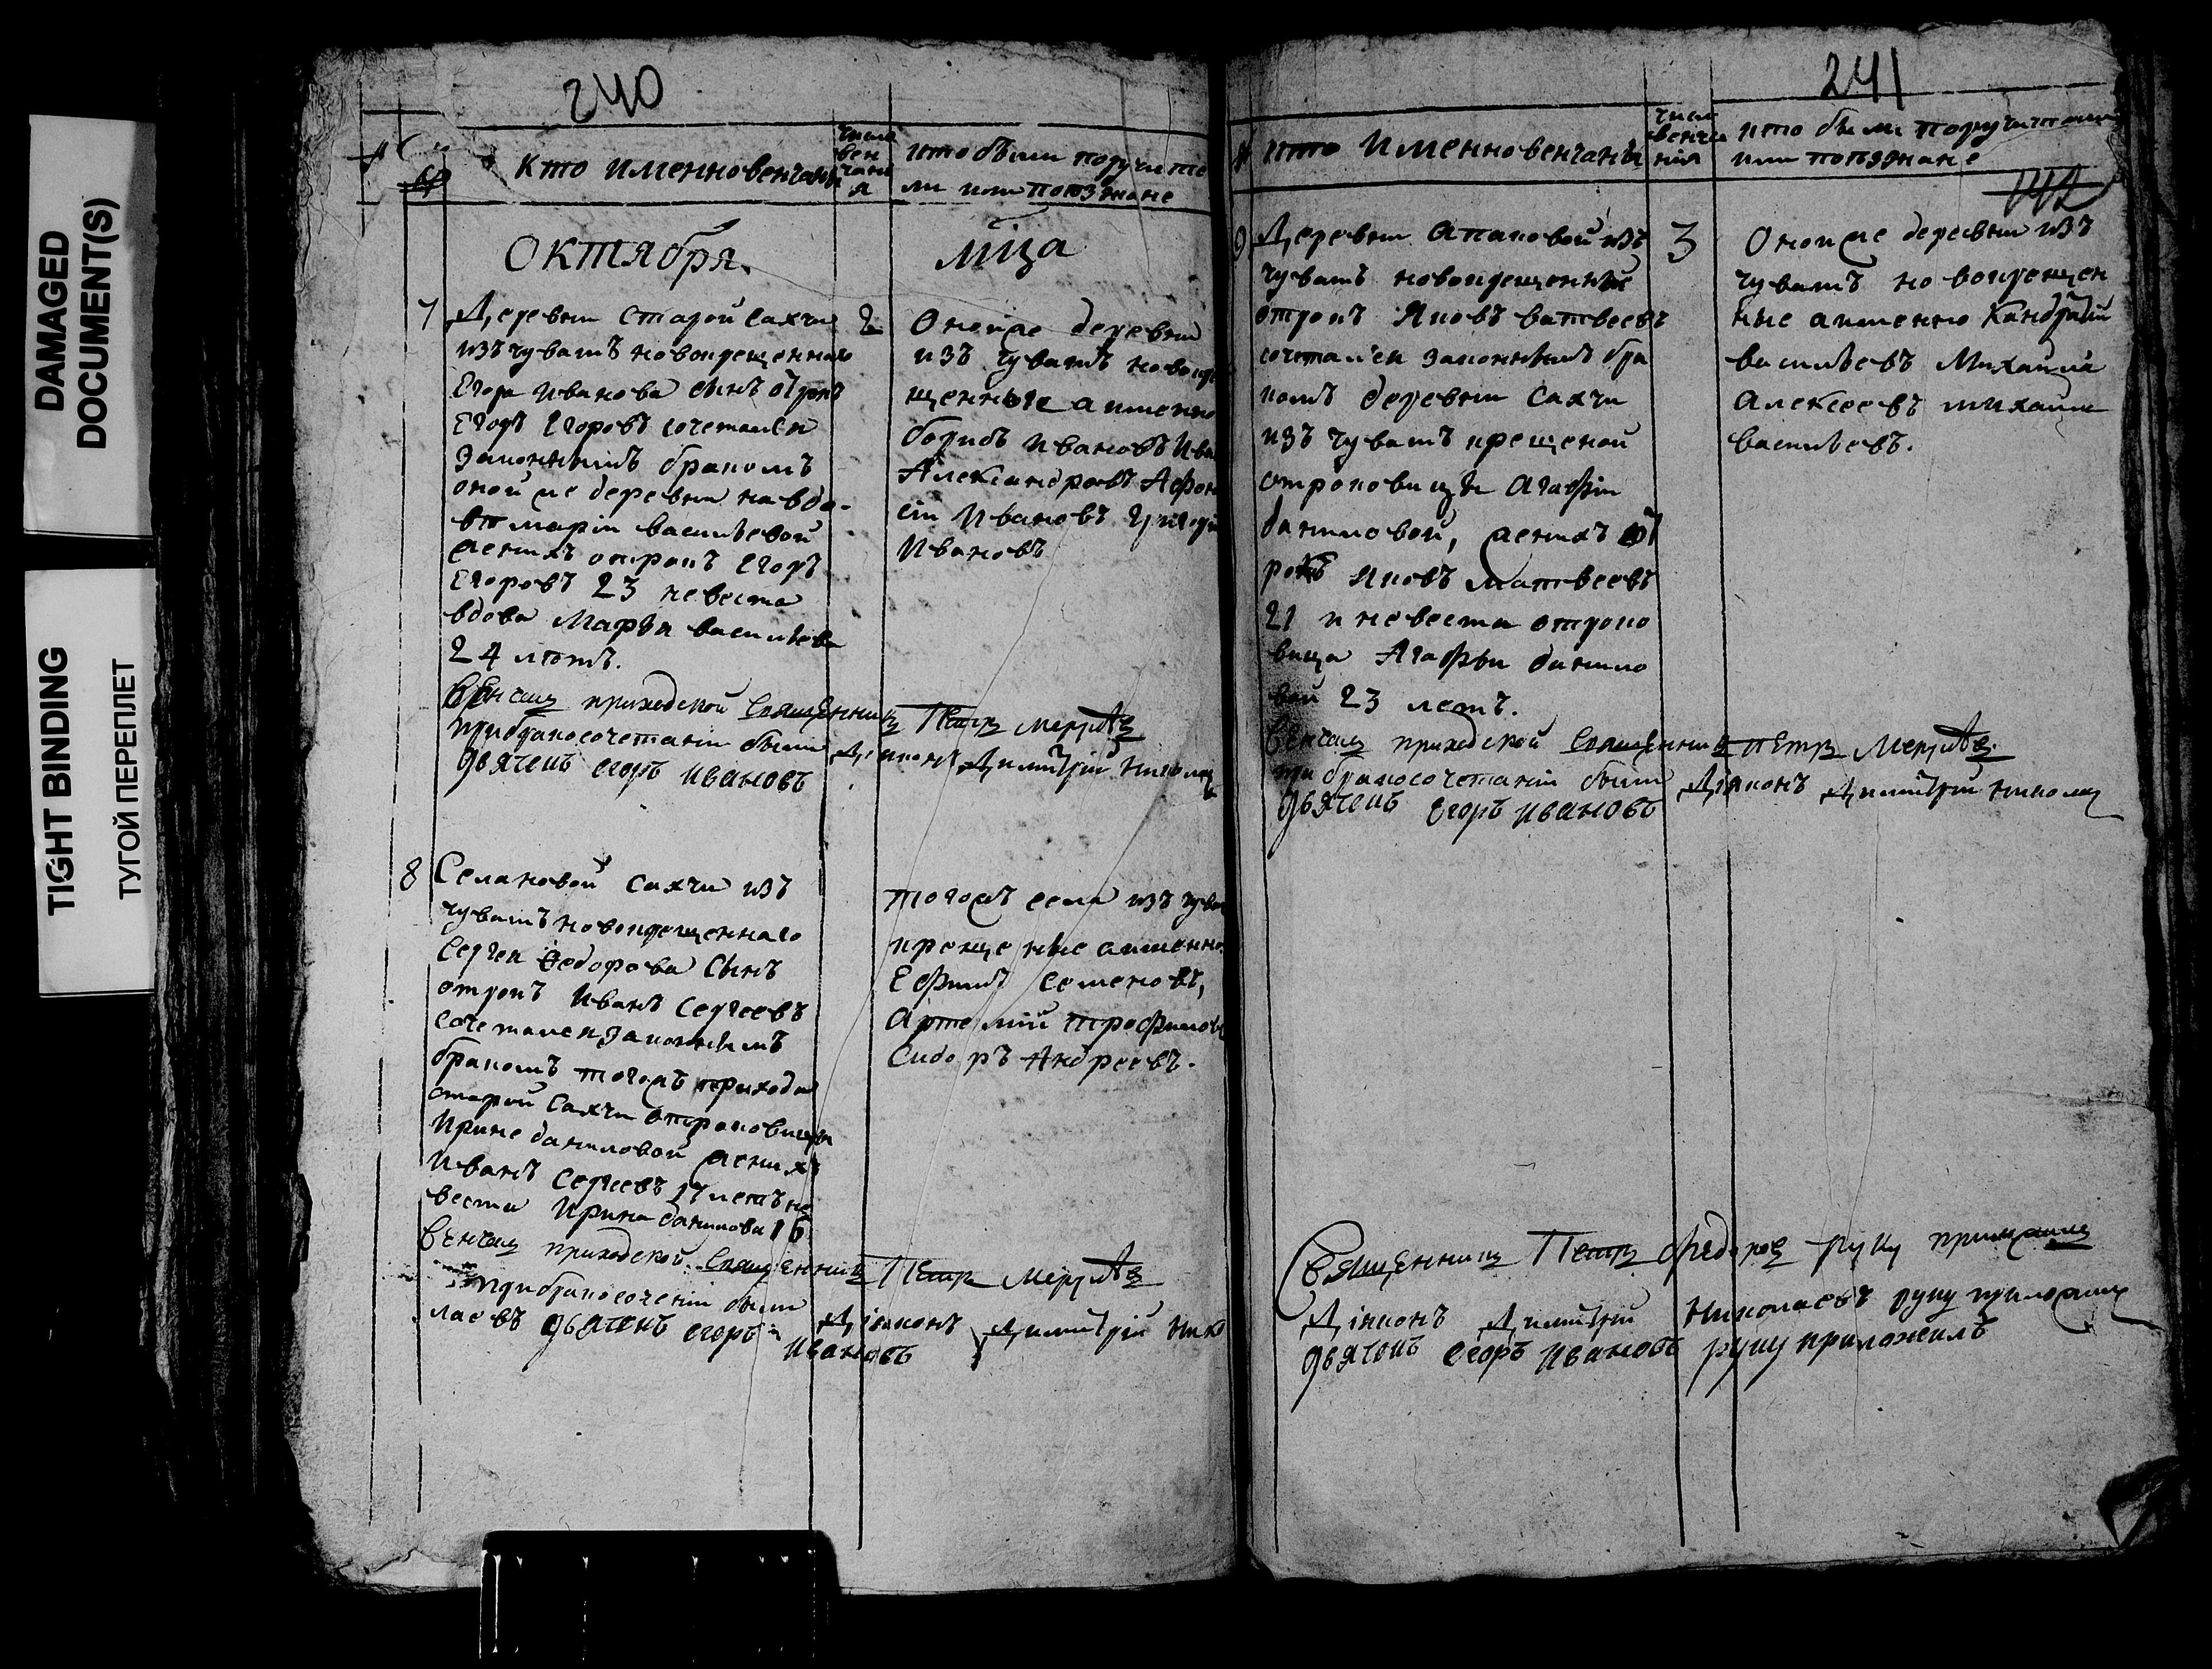 DAMAGED
DOCUMENT(S)
TIGHT BINDING
ТУГОЙ ПЕРЕПЛЕТ
240
Кто именновенчаны
числа
вен
чани
я
кто были поручите
ли или поезжане
Октября
мца
7
Деревни старой Сахчи
изъ чувашъ новокрещеннаго
Егора Иванова сынъ отрокъ
Егоръ Егоровъ сочетался
законнымъ бракомъ
оной же деревни на вдо-
ве марiи васильевой
жених отрокъ Егоръ
Егоровъ 23 невеста
вдова Марья васильева
24 летъ.
2
Оной же деревни
изъ чувашъ новокре
щенные а именно
борисъ Ивановъ Ива
Александровъ Афон
сiи Ивановъ Григори
Ивановъ
Венчалъ приходской священникъ Петръ
при бракосочетанiи были Дiаконъ Димитрiй Никола
дьячекъ Егоръ Ивановъ
8
Села новой Сахчи изъ
чувашъ новокрещеннаго
Сергея Федорова сынъ
отрокъ Иванъ Сергеевъ
сочетался законнымъ
бракомъ тогожъ прихода
старой Сахчи отроковицы
Ирине даниловой жених
Иванъ Сергеевъ 17 летъ не
веста Ирина данилова 16
тогожъ села изъ чува
крещеные а именно
Ефимъ Семеновъ,
Артемiй Трофимовъ
Сидоръ Андреевъ.
Венчалъ приходской священникъ Петръ
при бракосочетанiи были Дiаконъ Димитрiй Нико
лаевъ дьячекъ Егоръ
Ивановъ
241
кто Именновенчаны
числа
венча
нiя
кто были поручители
или поезжане
142
9
Деревни Апаковой изъ
чувашъ новокрещенные
отрокъ Яковъ ватвеевъ
сочетался законнымъ бра
комъ деревни Сахчи
изъ чувашъ крещеной
отроковицы Агафiи
даниловой, жених от
рокъ Яковъ Матвеевъ
21 и невеста отроко
вица Агафьи данило
вой 23 летъ.
3
Оной же деревни изъ
чувашъ новокрещен
ные а именно Кандратiй
васильевъ Михаила
Алексеевъ михаила
васильевъ.
Венчалъ приходской священникъ Петръ
при бракосочетанiи были Дiяконъ Димитрiй Никола
дьячекъ Егоръ Ивановъ
Священникъ Петръ руку
Дiяконъ Димитрiй Николаевъ руку приложилъ
дьячекъ Егоръ Ивановъ руку приложилъ